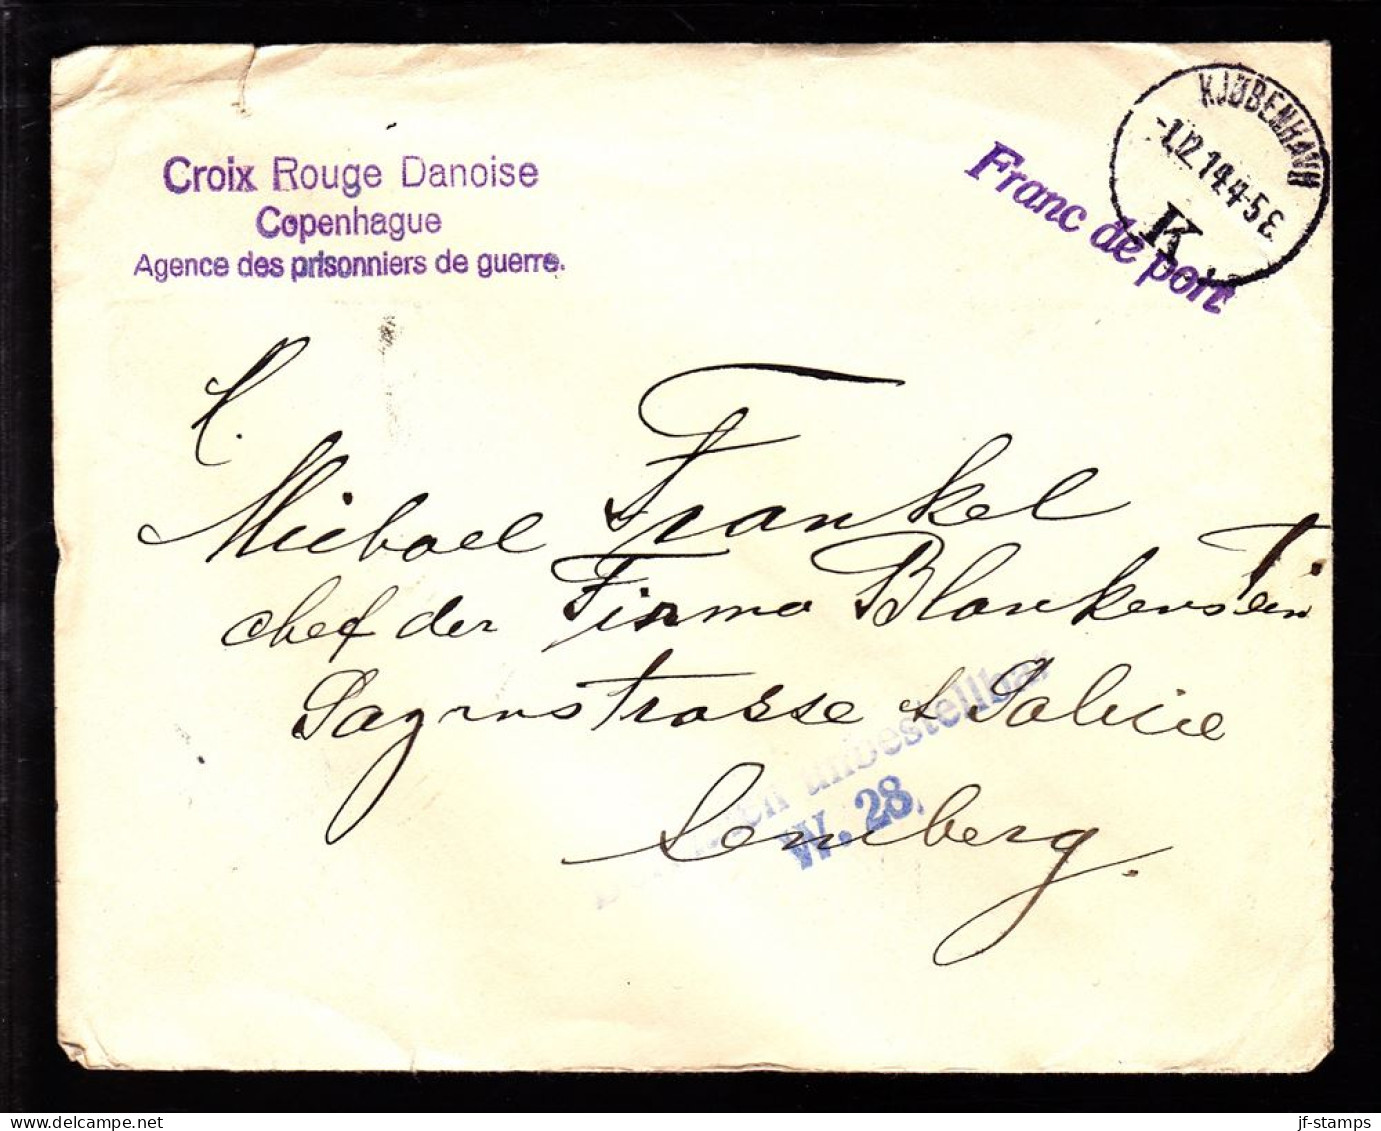 Croix Rouge Danoise
Copenhague
Agence des prisonniers de guerre.
Franc de port
KJØBENHAVN
-1.12.14.4-5 E.
K
Michael Frankel
Chef der Firma Blankenstein
strasse Galicie
unbestellbar
W. 28.
Lemberg.
jf-stamps